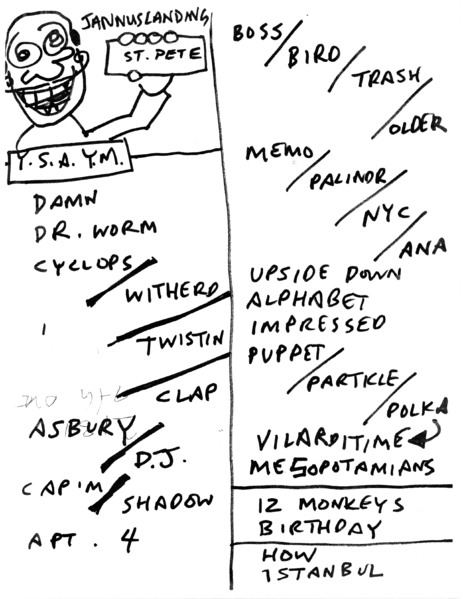 JANNUSLANDING
ST. PETE
Y.S.A.Y.M.
DAMN
DR. WORM
CYCLOPS
WITHERD
TWISTIN
CLAP
ASBURY
D.J.
CAP'M
SHADOW
APT. 4
BOSS
BIRD
TRASH
OLDER
MEMO
PALINDR
NYC
ANA
UPSIDE DOWN
ALPHABET
IMPRESSED
PUPPET
PARTICLE
POLKA
VILARDITIME
MESOPOTAMIANS
12 MONKEYS
BIRTHDAY
HOW
ISTANBUL